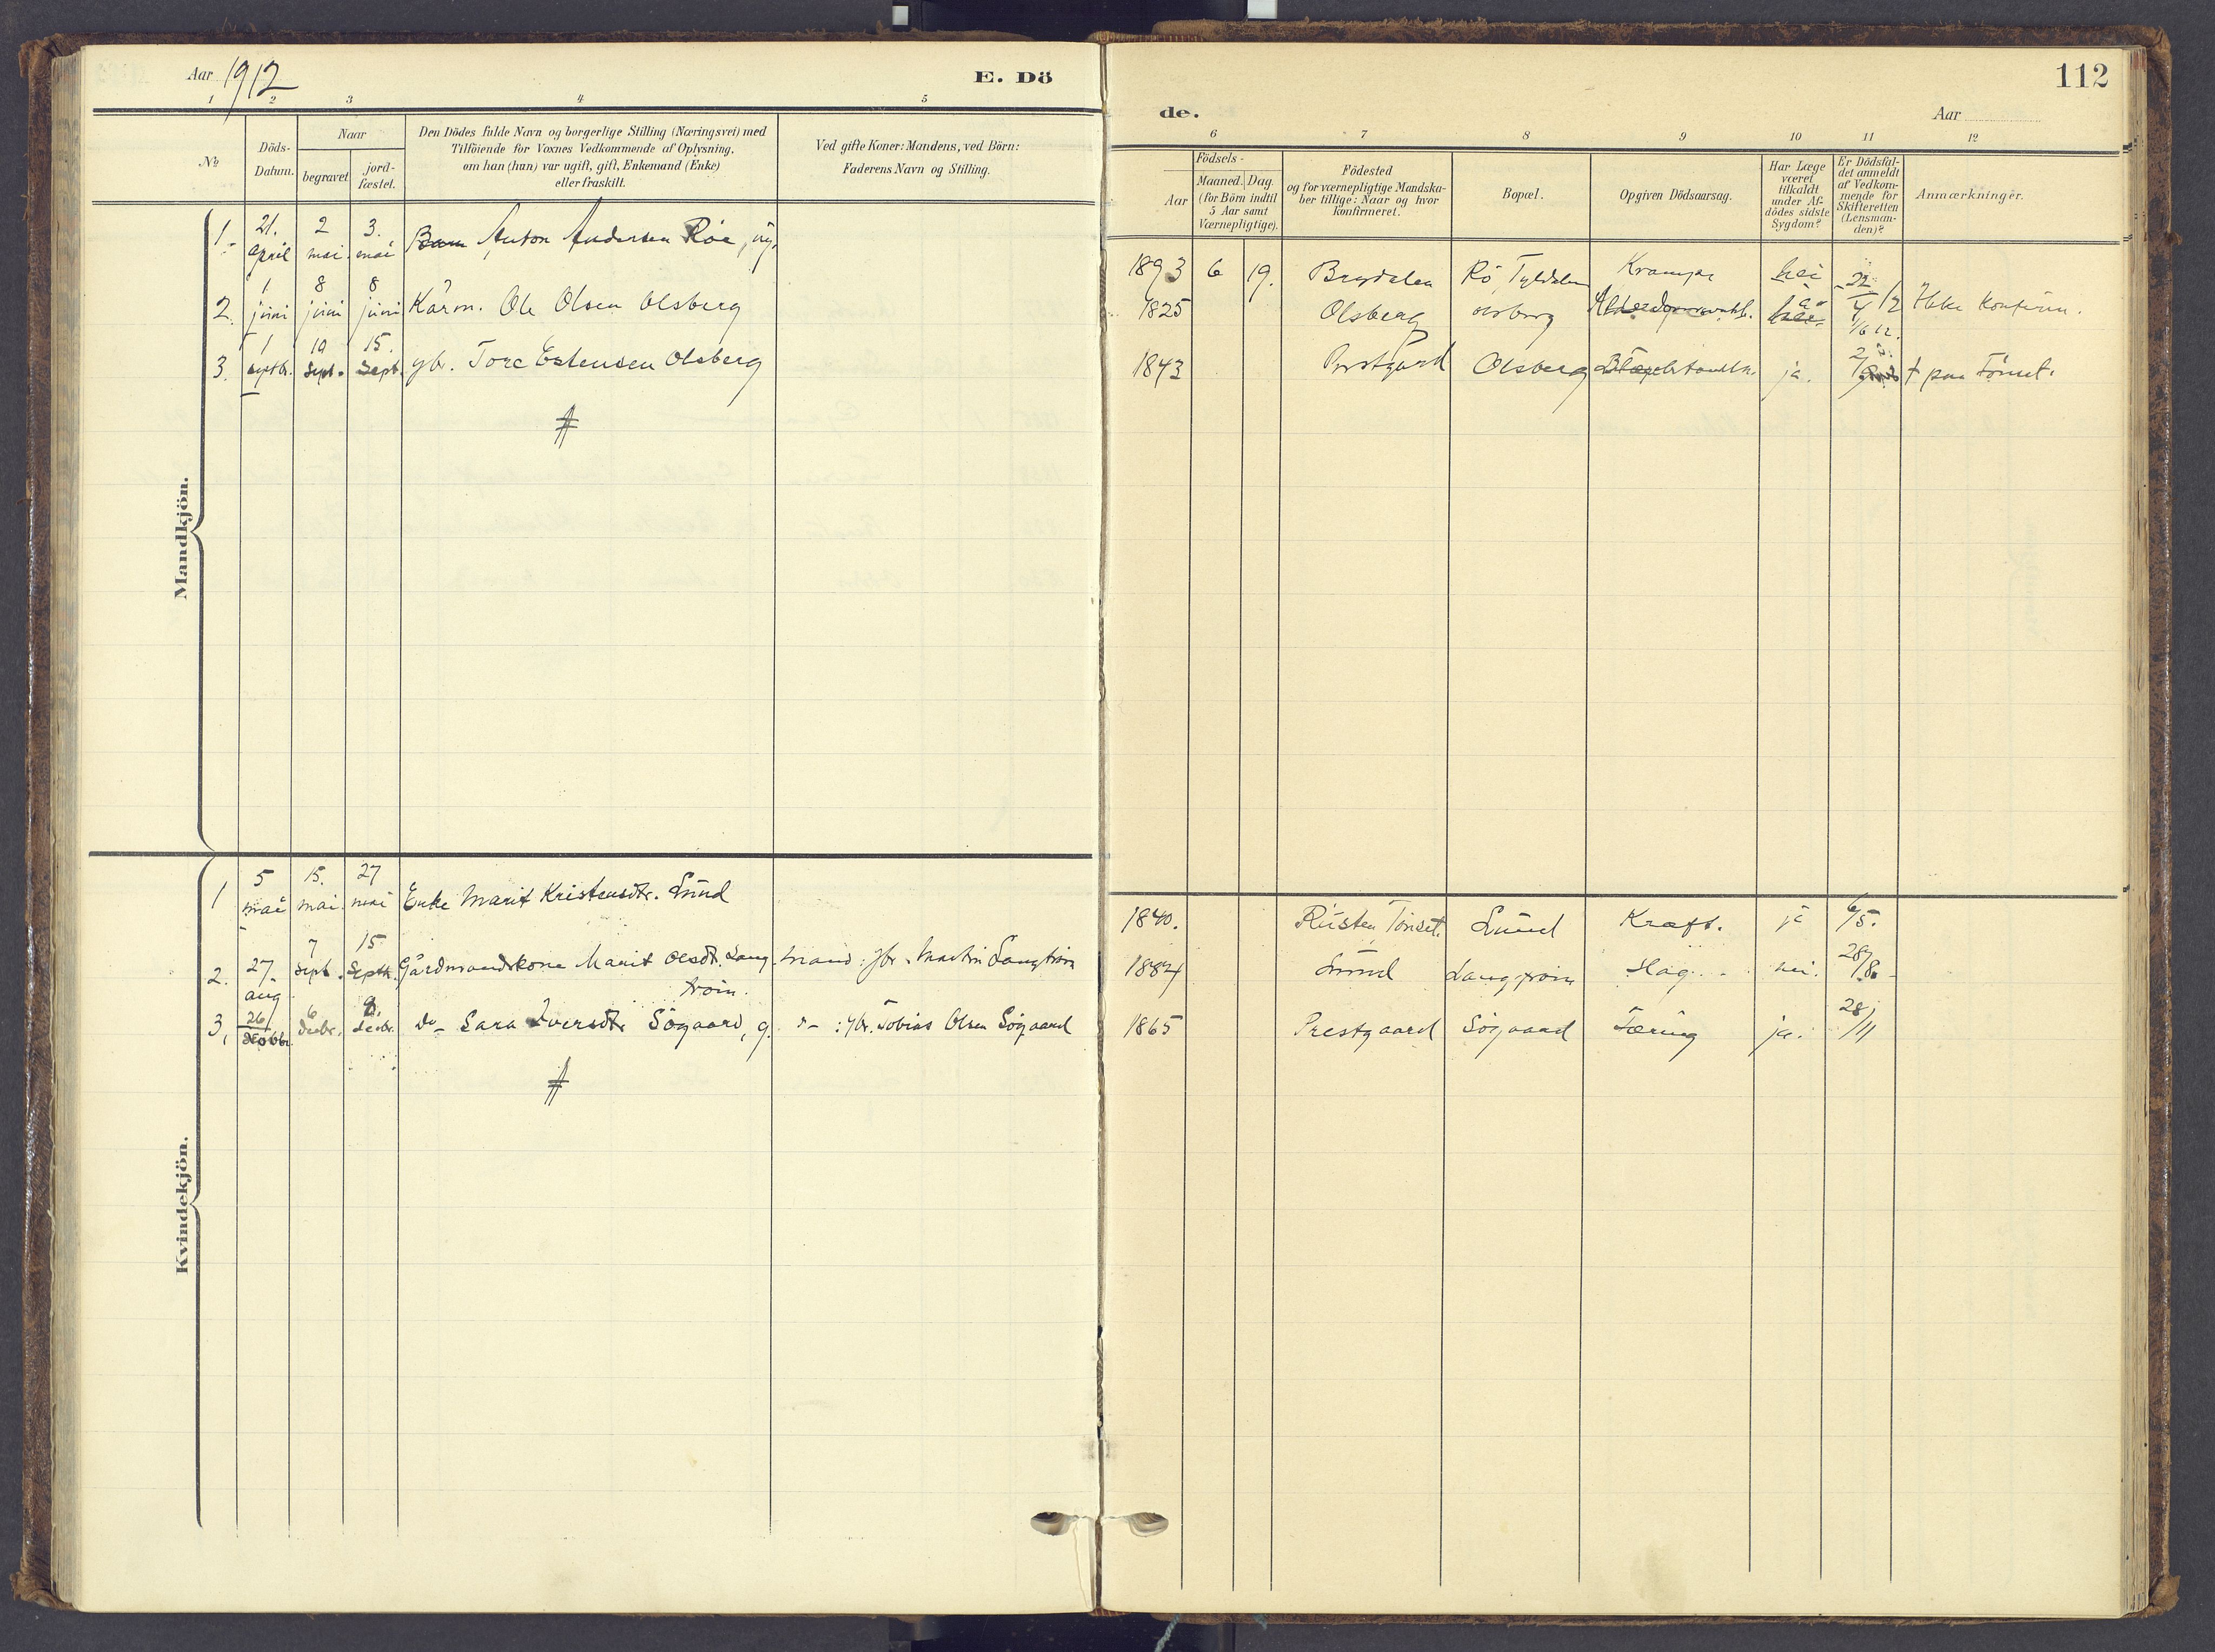 Aar 1912
E. Dö
1 2 3 4 5
№
Döds-Datum.
Naar
begravet
jord-fæstet.
Den Dödes fulde Navn og borgerlige Stilling (Næringsvei) med
Tilföiende for Voxnes Vedkommende af Oplysning,
om han (hun) var ugift, gift, Enkemand (Enke)
eller fraskilt.
Ved gifte Koner: Mandens, ved Börn:
Faderens Navn og Stilling.
Mandkjön.
1. 21. april 2 mai 3. mai Barn Anton Andersen Röe, ug.
2. 1 juni 8 juni 8 juni Kårm. Ole Olsen Olsberg
3. 1 septbr. 10 sept. 15. sept. gbr. Tore Estensen Olsberg
Kvindekjön.
1 5 mai 15. mai 27 mai Enke Marit Kristensdtr. Lund
2. 27. aug 7 sept. 15 Septb. Gårdmandskone Marit Olsdt. Lang-trøin. Mand: gbr. Martin Langtrøin
3, 26/ Novbr. 6 decbr. 8. decbr. do - Sara Iversdtr Sögaard, g. d- : gbr. Tobias Olsen Sögaard
112
de.
Aar
6 7 8 9 10 11 12
Födsels-
Aar
Maaned. Dag.
(for Börn indtil
5 Aar samt
Værnepligtige).
Födested
og for værnepligtige Mandska-
ber tillige: Naar og hvor
konfirmeret.
Bopæl.
Opgiven Dödsaarsag.
Har Læge
været
tilkaldt
under Af-
dödes sidste
Sygdom?
Er Dödsfal-
det anmeldt
af Vedkom-
mende for
Skifteretten
(Lensman-
den)?
Anmærkninger.
1893 6 19. Brydalen Rö, Tyldalen Krampe nei 22/4 12 Ikke konfirm.
1825 Olsberg Olsberg nei 1/6 12.
1843 Prestgård Olsberg ja. † paa Tönset.
1840. Rusten, Tönset. Lund Kræft. ja 6/5.
1884 Lund Langtrøin Slag nei. 28/8 -
1865 Prestgaard Sögaard Tæring ja. 28/11